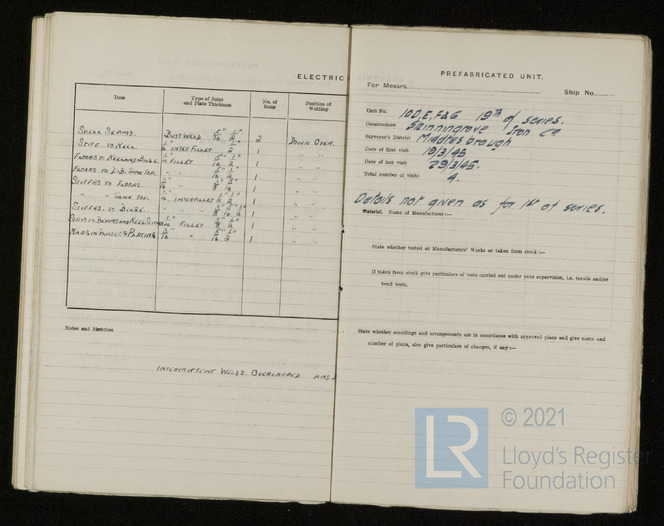 ELECTRIC
Item
Type of Joint and Plate Thickness
No. of Runs
Position of Welding
SHELL SEAMS. BUTT WELD 2 DOWN OVER.
STIFF. TO KEEL. INTER FILLET 1 " "
FLOORS TO KEEL FILLET 1 " "
FLOORS TO D.B. TANK TOP. " 1 " "
STIFFRS TO FLOORS. " 1 " "
" " TANK TOP. INTERFILLET 1 " "
STIFFRS. TO " 1 " "
FILLET 1 " "
MARGIN " 1 " "
Notes and Sketches
INTERMITTENT WELDS OVERLAPPED
PREFABRICATED UNIT.
For Messrs. Ship No.
Unit No. 10D,E,F&G 19th of series.
Constructors Skinningrove Iron Co
Surveyor's District Middlesbrough
Date of first visit 9/3/45
Date of last visit 29/3/45.
Total number of visits 4.
Details not given as for 1st of series.
Material. Name of Manufacturer:—
State whether tested at Manufacturers' Works or taken from stock:—
If taken from stock give particulars of tests carried out under your supervision, i.e. tensile and/or
bend tests.
State whether scantlings and arrangements are in accordance with approved plans and give name and
number of plans, also give particulars of changes, if any:—
© 2021
LR
Lloyd's Register
Foundation